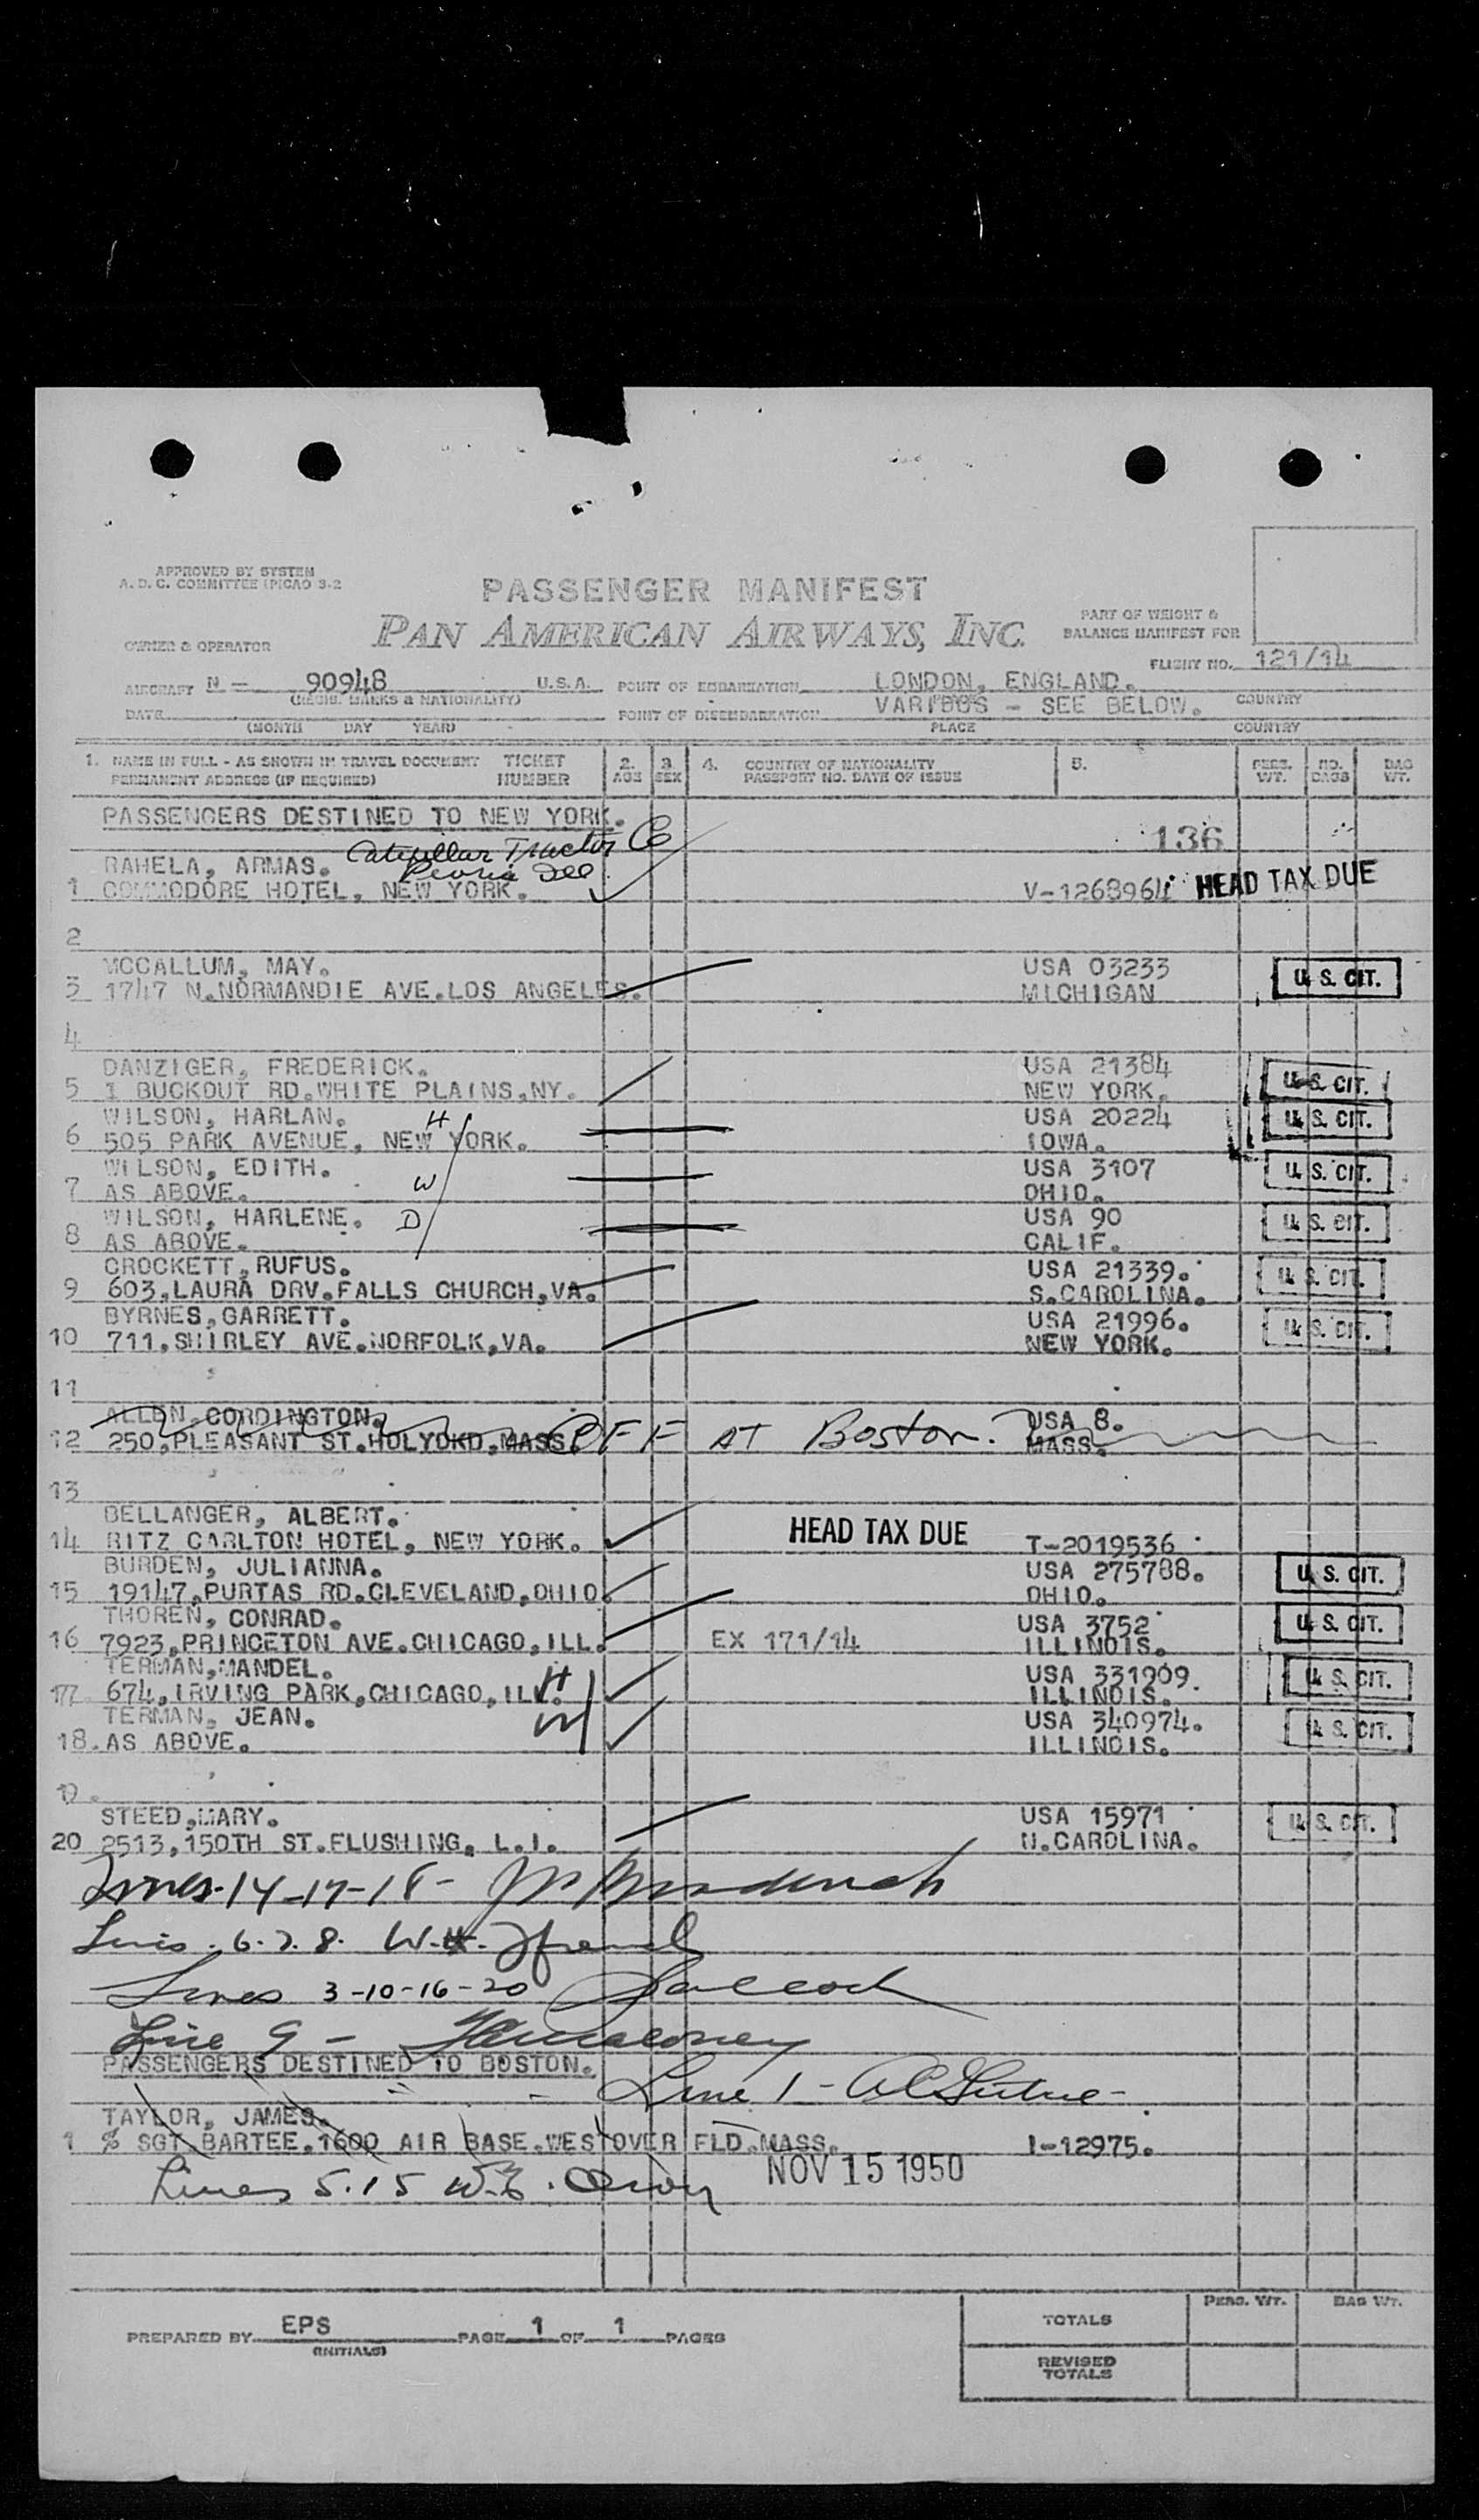 APPROVED BY SYSTEM
A. D. C. COMMITTEE (PICAO 3-2
PASSENGER MANIFEST
PAN AMERICAN AIRWAYS, INC.
PART OF WEIGHT &
BALANCE MANIFEST FOR
OWNER & OPERATOR
FLIGHT NO. 121/14
AIRCRAFT N - 90948 U.S.A. POINT OF EMBARKATION LONDON, ENGLAND.
(REGIS. MARKS & NATIONALITY) PLACE COUNTRY
DATE POINT OF DISEMBARKATION VARIOUS - SEE BELOW.
(MONTH DAY YEAR) PLACE COUNTRY
1. NAME IN FULL - AS SHOWN IN TRAVEL DOCUMENT TICKET 2. 3. 4. COUNTRY OF NATIONALITY 5. PERS. NO. BAG
PERMANENT ADDRESS (IF REQUIRED) NUMBER AGE SEX PASSPORT NO. DATE OF ISSUE WT. BAGS WT.
PASSENGERS DESTINED TO NEW YORK.
136
Caterpillar Tractor Co
RAHELA, ARMAS. Peoria Ill.
1 COMMODORE HOTEL, NEW YORK. V-1268964 HEAD TAX DUE
2
MCCALLUM, MAY. USA 03233
3 1747 N.NORMANDIE AVE.LOS ANGELES. MICHIGAN U. S. CIT.
4
DANZIGER, FREDERICK. USA 21384
5 1 BUCKOUT RD.WHITE PLAINS,NY. NEW YORK. U. S. CIT.
WILSON, HARLAN. H USA 20224
6 505 PARK AVENUE, NEW YORK. IOWA. U. S. CIT.
WILSON, EDITH. USA 3107
7 AS ABOVE. W OHIO. U. S. CIT.
WILSON, HARLENE. D USA 90
8 AS ABOVE. CALIF. U. S. CIT.
CROCKETT, RUFUS. USA 21339.
9 603,LAURA DRV.FALLS CHURCH,VA. S.CAROLINA. U. S. CIT.
BYRNES,GARRETT. USA 21996.
10 711,SHIRLEY AVE.NORFOLK,VA. NEW YORK. U. S. CIT.
11
ALLEN,CORDINGTON. USA 8.
12 250,PLEASANT ST.HOLYOKD,MASS. OFF AT Boston. MASS.
13
BELLANGER, ALBERT.
14 RITZ CARLTON HOTEL, NEW YORK. HEAD TAX DUE T-2019536
BURDEN, JULIANNA. USA 275788.
15 19147,PURTAS RD.CLEVELAND,OHIO. OHIO. U. S. CIT.
THOREN, CONRAD. USA 3752
16 7923,PRINCETON AVE.CHICAGO,ILL. EX 171/14 ILLINOIS. U. S. CIT.
TERMAN,MANDEL. H USA 331909.
17 674,IRVING PARK,CHICAGO,ILL. ILLINOIS. U. S. CIT.
TERMAN, JEAN. W USA 340974.
18. AS ABOVE. ILLINOIS. U. S. CIT.
STEED,MARY. USA 15971
20 2513,150TH ST.FLUSHING, L.I. N.CAROLINA. U. S. CIT.
Lines 14-17-18-
Lines 6.7.8. W.H.
Lines 3-10-16-20
Line 9 -
PASSENGERS DESTINED TO BOSTON.
Line 1 -
TAYLOR, JAMES.
1 % SGT.BARTEE.1600 AIR BASE.WESTOVER FLD.MASS. I-12975.
NOV 15 1950
Lines 5.15
PREPARED BY EPS PAGE 1 OF 1 PAGES
(INITIALS)
PERS. WT. BAG WT.
TOTALS
REVISED
TOTALS